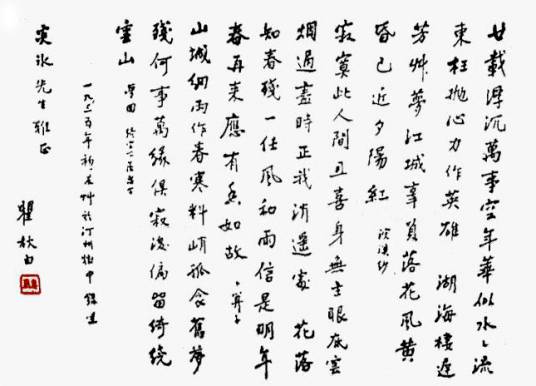 廿載浮沉萬事空年華似水々流
東枉拋心力作英雄 湖海棲遲
芳艸夢江城辜負落花風黃
昏已近夕陽紅 浣溪紗
寂寞此人間且喜身無主眼底雲
烟過盡時正我逍遙處 花落
知春殘一任風和雨信是明年
春再來應有香如故 卜算子
山城細雨作春寒料峭孤衾舊夢
殘何事萬緣俱寂後偏留綺繞
雲山 夢回
一九三五年初 艸於汀州獄中 錄呈
冰先生雅正
瞿秋白